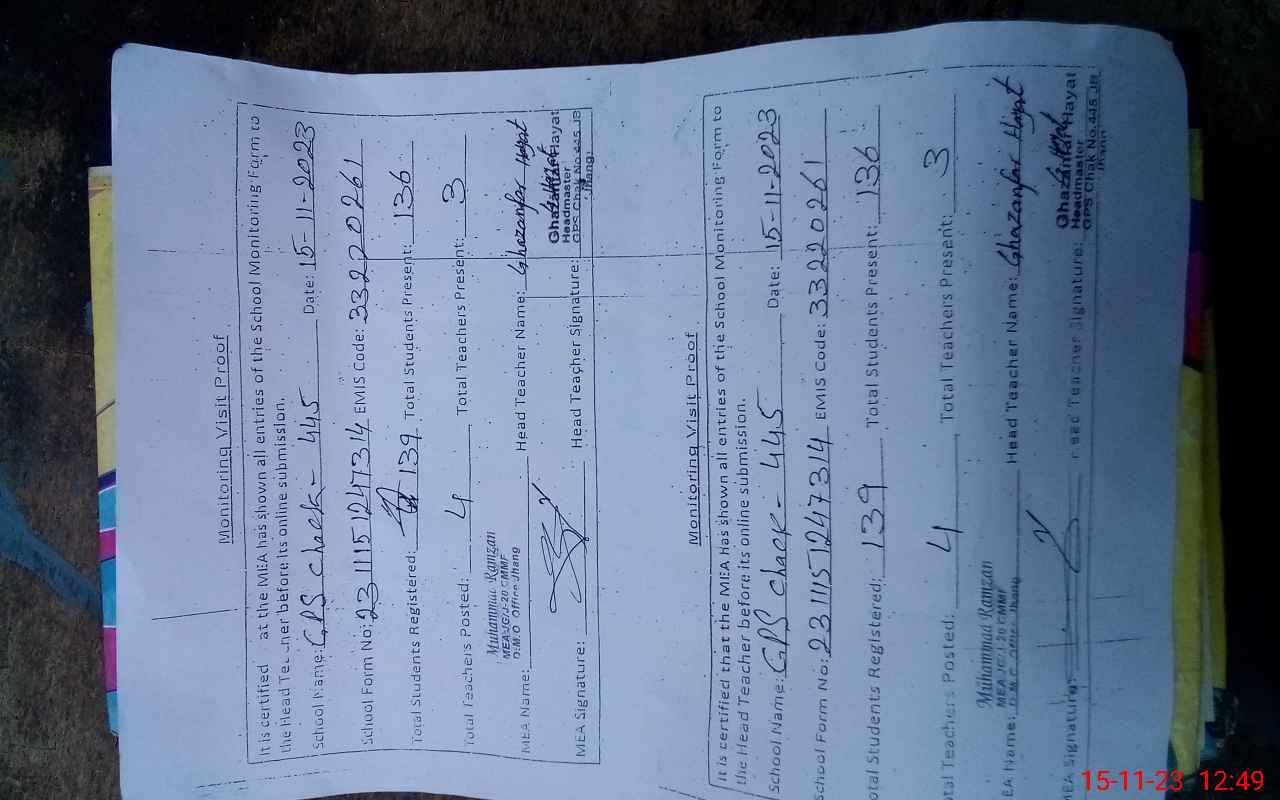 Monitoring Visit Proof
It is certified at the MEA has shown all entries of the School Monitoring Form to
the Head before its online submission.
School Name: GPS chack - 445 Date: 15-11-2023
School Form No: 2311151247314 EMIS Code: 33220261
Total Students Registered: 139 Total Students Present: 136
Total Teachers Posted: 4 Total Teachers Present: 3
Muhammad Ramzan
MEA/G/J-20 CMMF
D.M.O Office Jhang
MEA Name: Head Teacher Name: Ghazanfar Hayat
Ghazanfar Hayat
Headmaster
GPS Chak No.445 JB
Jhang
MEA Signature: Head Teacher Signature:
Monitoring Visit Proof
It is certified that the MEA has shown all entries of the School Monitoring Form to
the Head Teacher before its online submission.
School Name: GPS chack - 445 Date: 15-11-2023
School Form No: 2311151247314 EMIS Code: 33220261
otal Students Registered: 139 Total Students Present: 136
otal Teachers Posted: 4 Total Teachers Present: 3
Muhammad Ramzan
MEA/G/J-20 CMMF
D.M.O Office Jhang
EA Name: Head Teacher Name: Ghazanfar Hayat
Ghazanfar Hayat
Headmaster
GPS Chak No.445 JB
Jhang
MEA Signature: Head Teacher Signature:
15-11-23 12:49